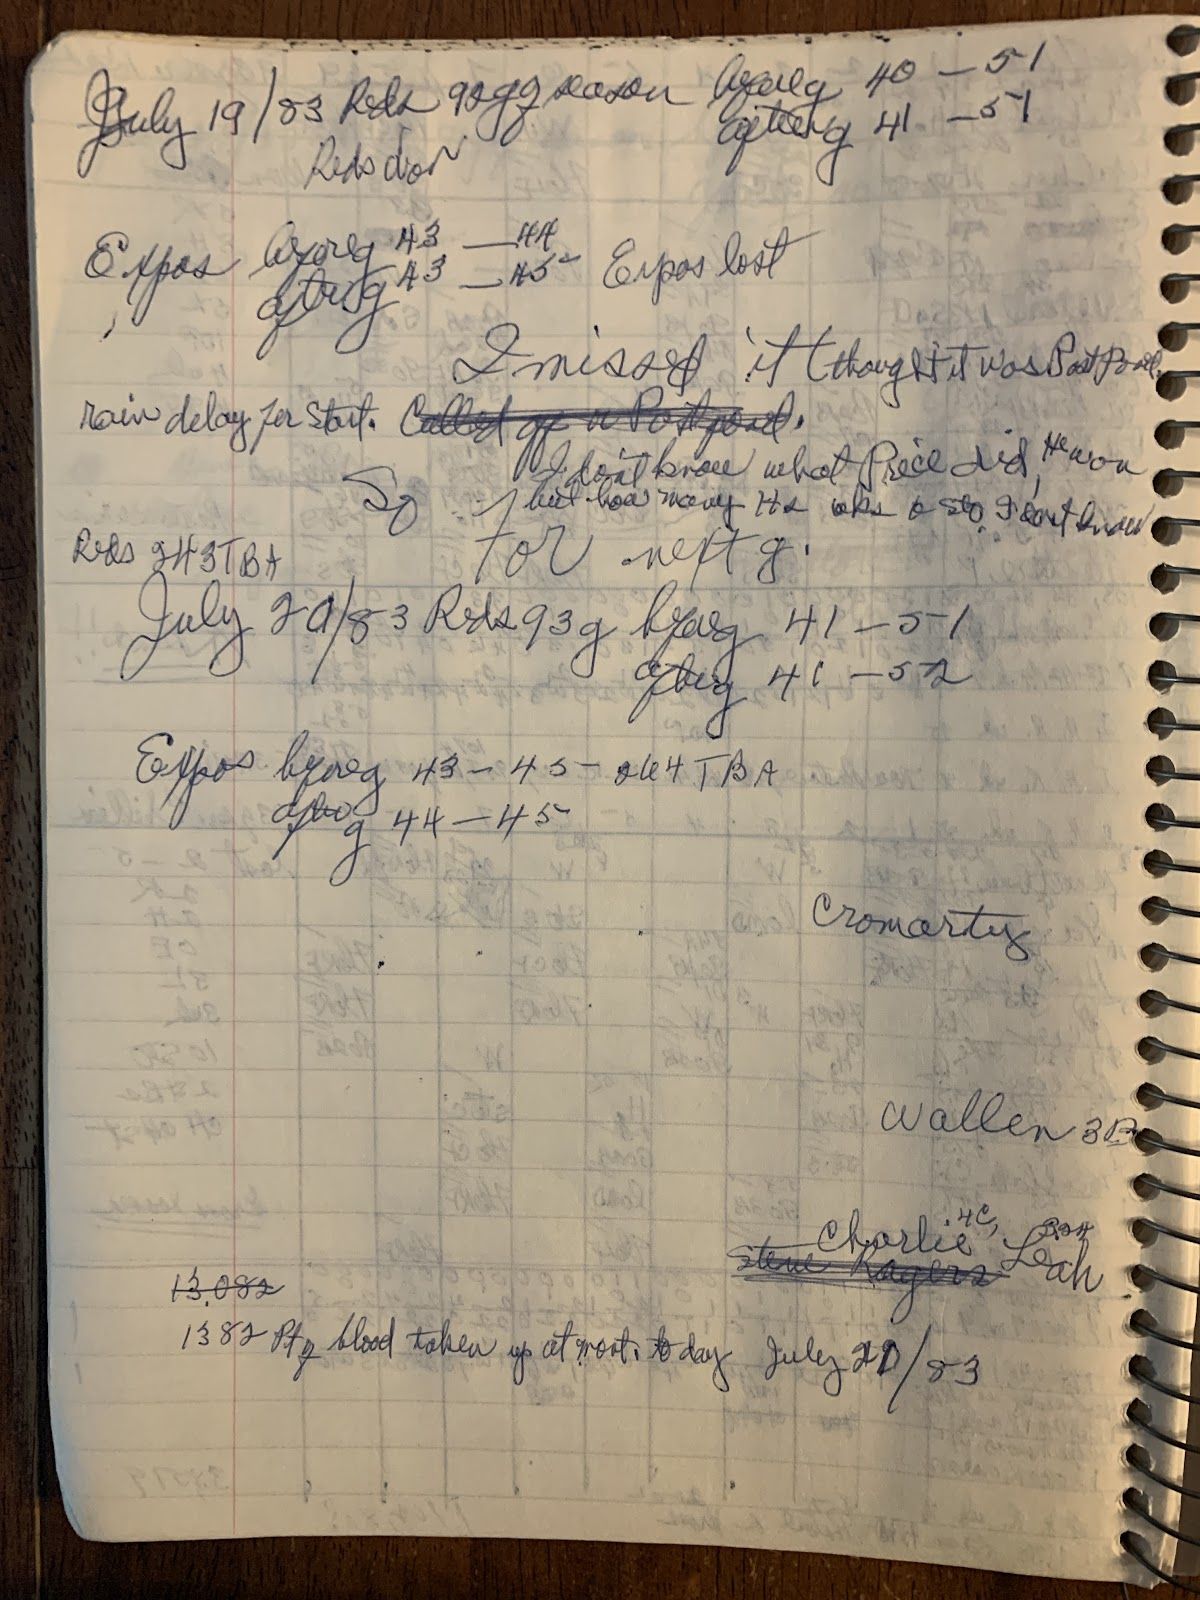 July 19/83 Reds 92g of season before g 40 - 51
after g 41 - 51
Reds won
Expos before g 43 - 44
after g 43 - 45 Expos lost
I missed it (thought it was Postponed.
rain delay for start. Called off a Postponed.
I don't know what Price did, He won
So but how many Hs wks & sto. I don't know
for next g.
Reds 243 TBA
July 20/83 Reds 93g before g 41 - 51
after g 41 - 52
Expos before g 43 - 45 - 264 TBA
after g 44 - 45
Cromarty
Wallen 3B
Charlie 4C, Leah
Steve Rogers
13,082
1382 Pt of blood taken up at mont. today July 20/83